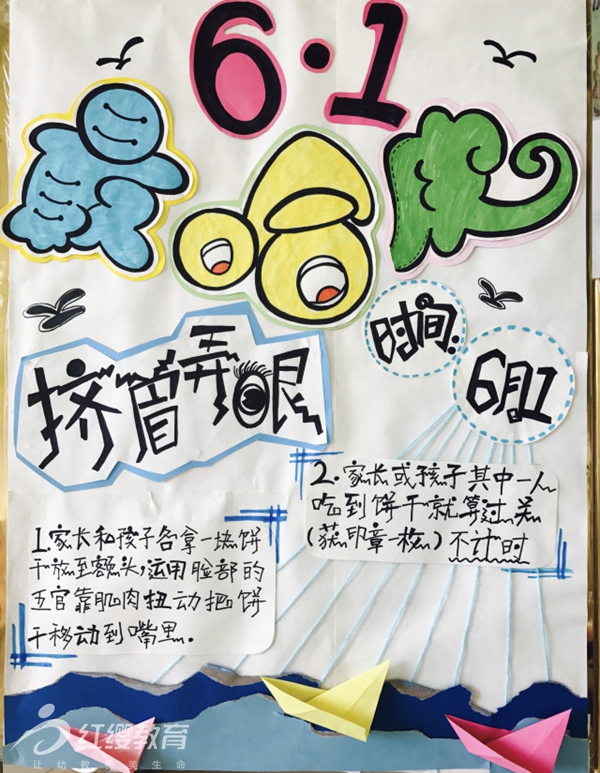 6·1
哈
时间:
6月1
挤眉弄眼
2.家长或孩子其中一人
吃到饼干就算过关
(获印章一枚)不计时
1.家长和孩子各拿一块饼
干放至额头,运用脸部的
五官靠肌肉扭动把饼
干移动到嘴里.
红缨教育
让幼教美生命